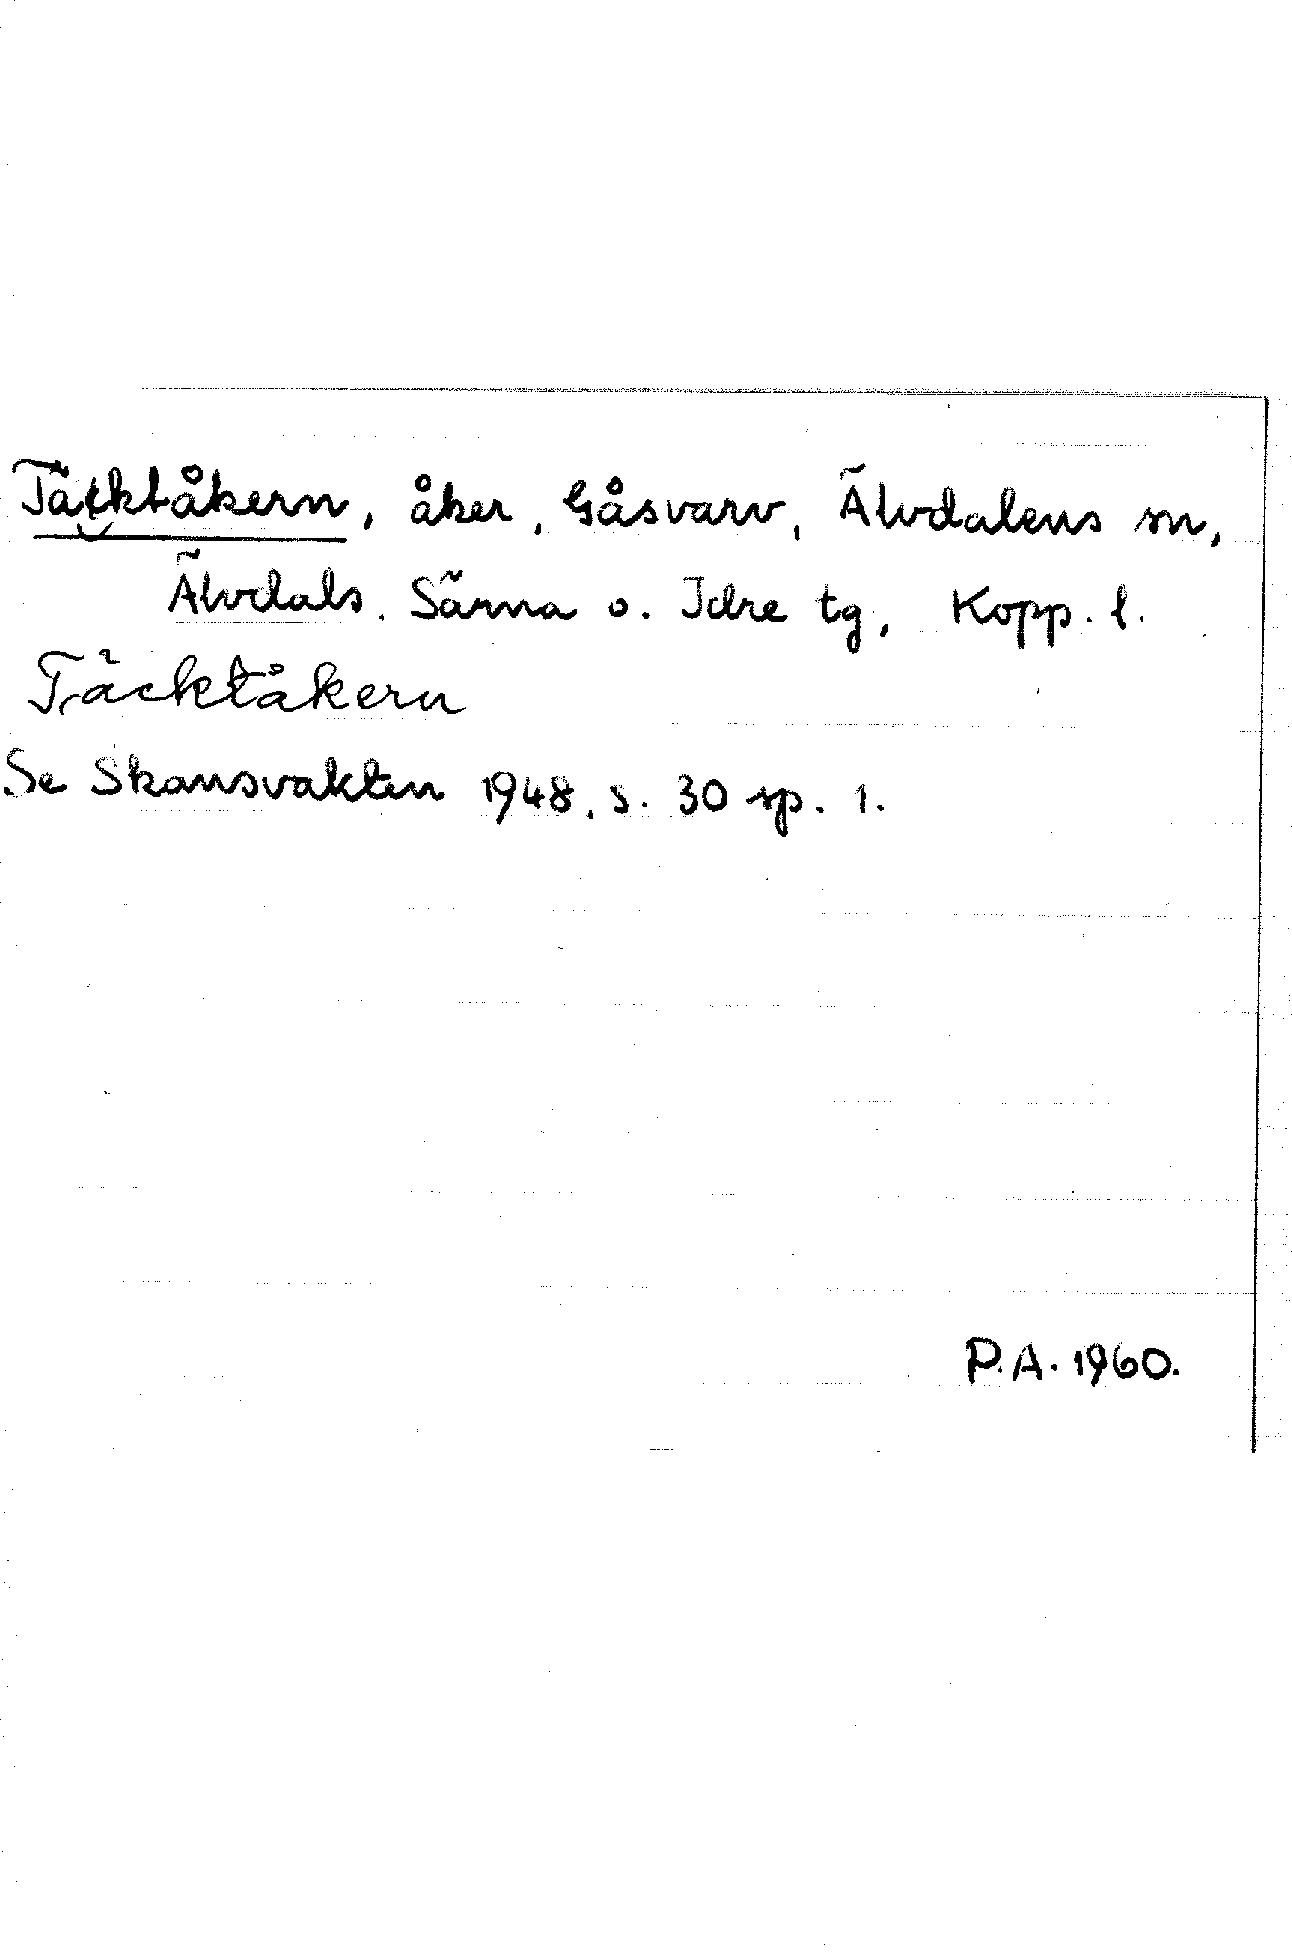 Täcktåkern, åker, Gåsvarv, Älvdalens sn,
Älvdals, Särna o. Idre tg, Kopp. l.
Täcktåkern
Se Skansvakten 1948, s. 30 sp. 1.
P.A. 1960.